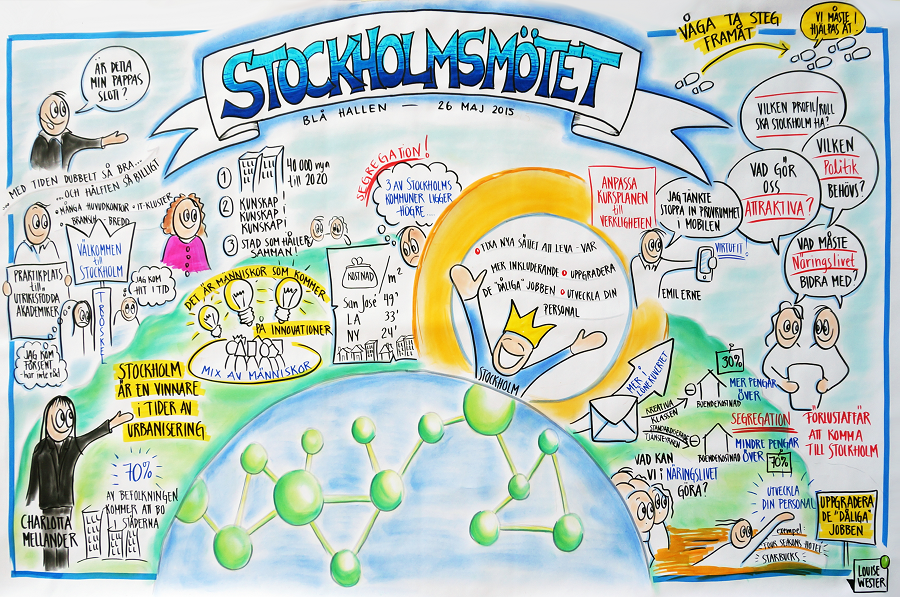 STOCKHOLMSMÖTET
BLÅ HALLEN — 26 MAJ 2015
ÄR DETTA
MIN PAPPAS
SLOTT?
MED TIDEN DUBBELT SÅ BRA...
...OCH HÄLFTEN SÅ BILLIGT
• MÅNGA HUVUDKONTOR
• IT-KLUSTER
• BRANSCH-BREDD
VÄLKOMMEN
till
STOCKHOLM
TRÖSKEL
PRAKTIKPLATS
till
UTRIKESFÖDDA
AKADEMIKER
JAG KOM
HIT I TID
JAG KOM
FÖR SENT
har inte råd
1 40 000 nya
till 2020
2 KUNSKAP
KUNSKAP!
KUNSKAP!
3 STAD SOM HÅLLER
SAMMAN!
SEGREGATION!
3 AV STOCKHOLMS
KOMMUNER LIGGER
HÖGRE...
DET ÄR MÄNNISKOR SOM KOMMER
PÅ INNOVATIONER
MIX AV MÄNNISKOR
KOSTNAD /m²
San José 49'
LA 33'
NY 24'
• FIXA NYA SÄTT ATT LEVA - VAR
MER INKLUDERANDE • UPPGRADERA
DE "DÅLIGA" JOBBEN • UTVECKLA DIN
PERSONAL
STOCKHOLM
ANPASSA
KURSPLANEN
till
VERKLIGHETEN
JAG TÄNKTE
STOPPA IN PROVRUMMET
I MOBILEN
VIRTUFIT
EMIL ERNE
VÅGA TA STEG
FRAMÅT
VI MÅSTE
HJÄLPAS ÅT!
VILKEN PROFIL/ROLL
SKA STOCKHOLM HA?
VILKEN
Politik
BEHÖVS?
VAD GÖR
OSS
ATTRAKTIVA?
VAD MÅSTE
Näringslivet
BIDRA MED?
"FÖRLUSTAFFÄR"
ATT KOMMA
TILL STOCKHOLM
STOCKHOLM
ÄR EN VINNARE
i TIDER AV
URBANISERING
70%
AV BEFOLKNINGEN
KOMMER ATT BO
i STÄDERNA
CHARLOTTA
MELLANDER
MER i
LÖNEKUVERTET
KREATIVA
KLASSEN
BOENDEKOSTNAD
30%
MER PENGAR
ÖVER
SEGREGATION
BOENDEKOSTNAD
MINDRE PENGAR
ÖVER
70%
VAD KAN
VI i NÄRINGSLIVET
GÖRA?
UTVECKLA
DIN PERSONAL
exempel:
FOUR SEASONS HOTEL
STARBUCKS
UPPGRADERA
DE "DÅLIGA"
JOBBEN
LOUISE
WESTER